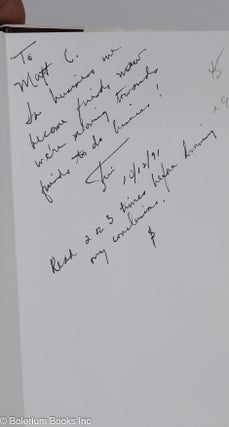 To
Matt C.
In business we
become friends now
we're moving towards
friends to do business!
10/12/91
Read 2 or 3 times before drawing
any conclusions.
$
45
© Bolerium Books Inc